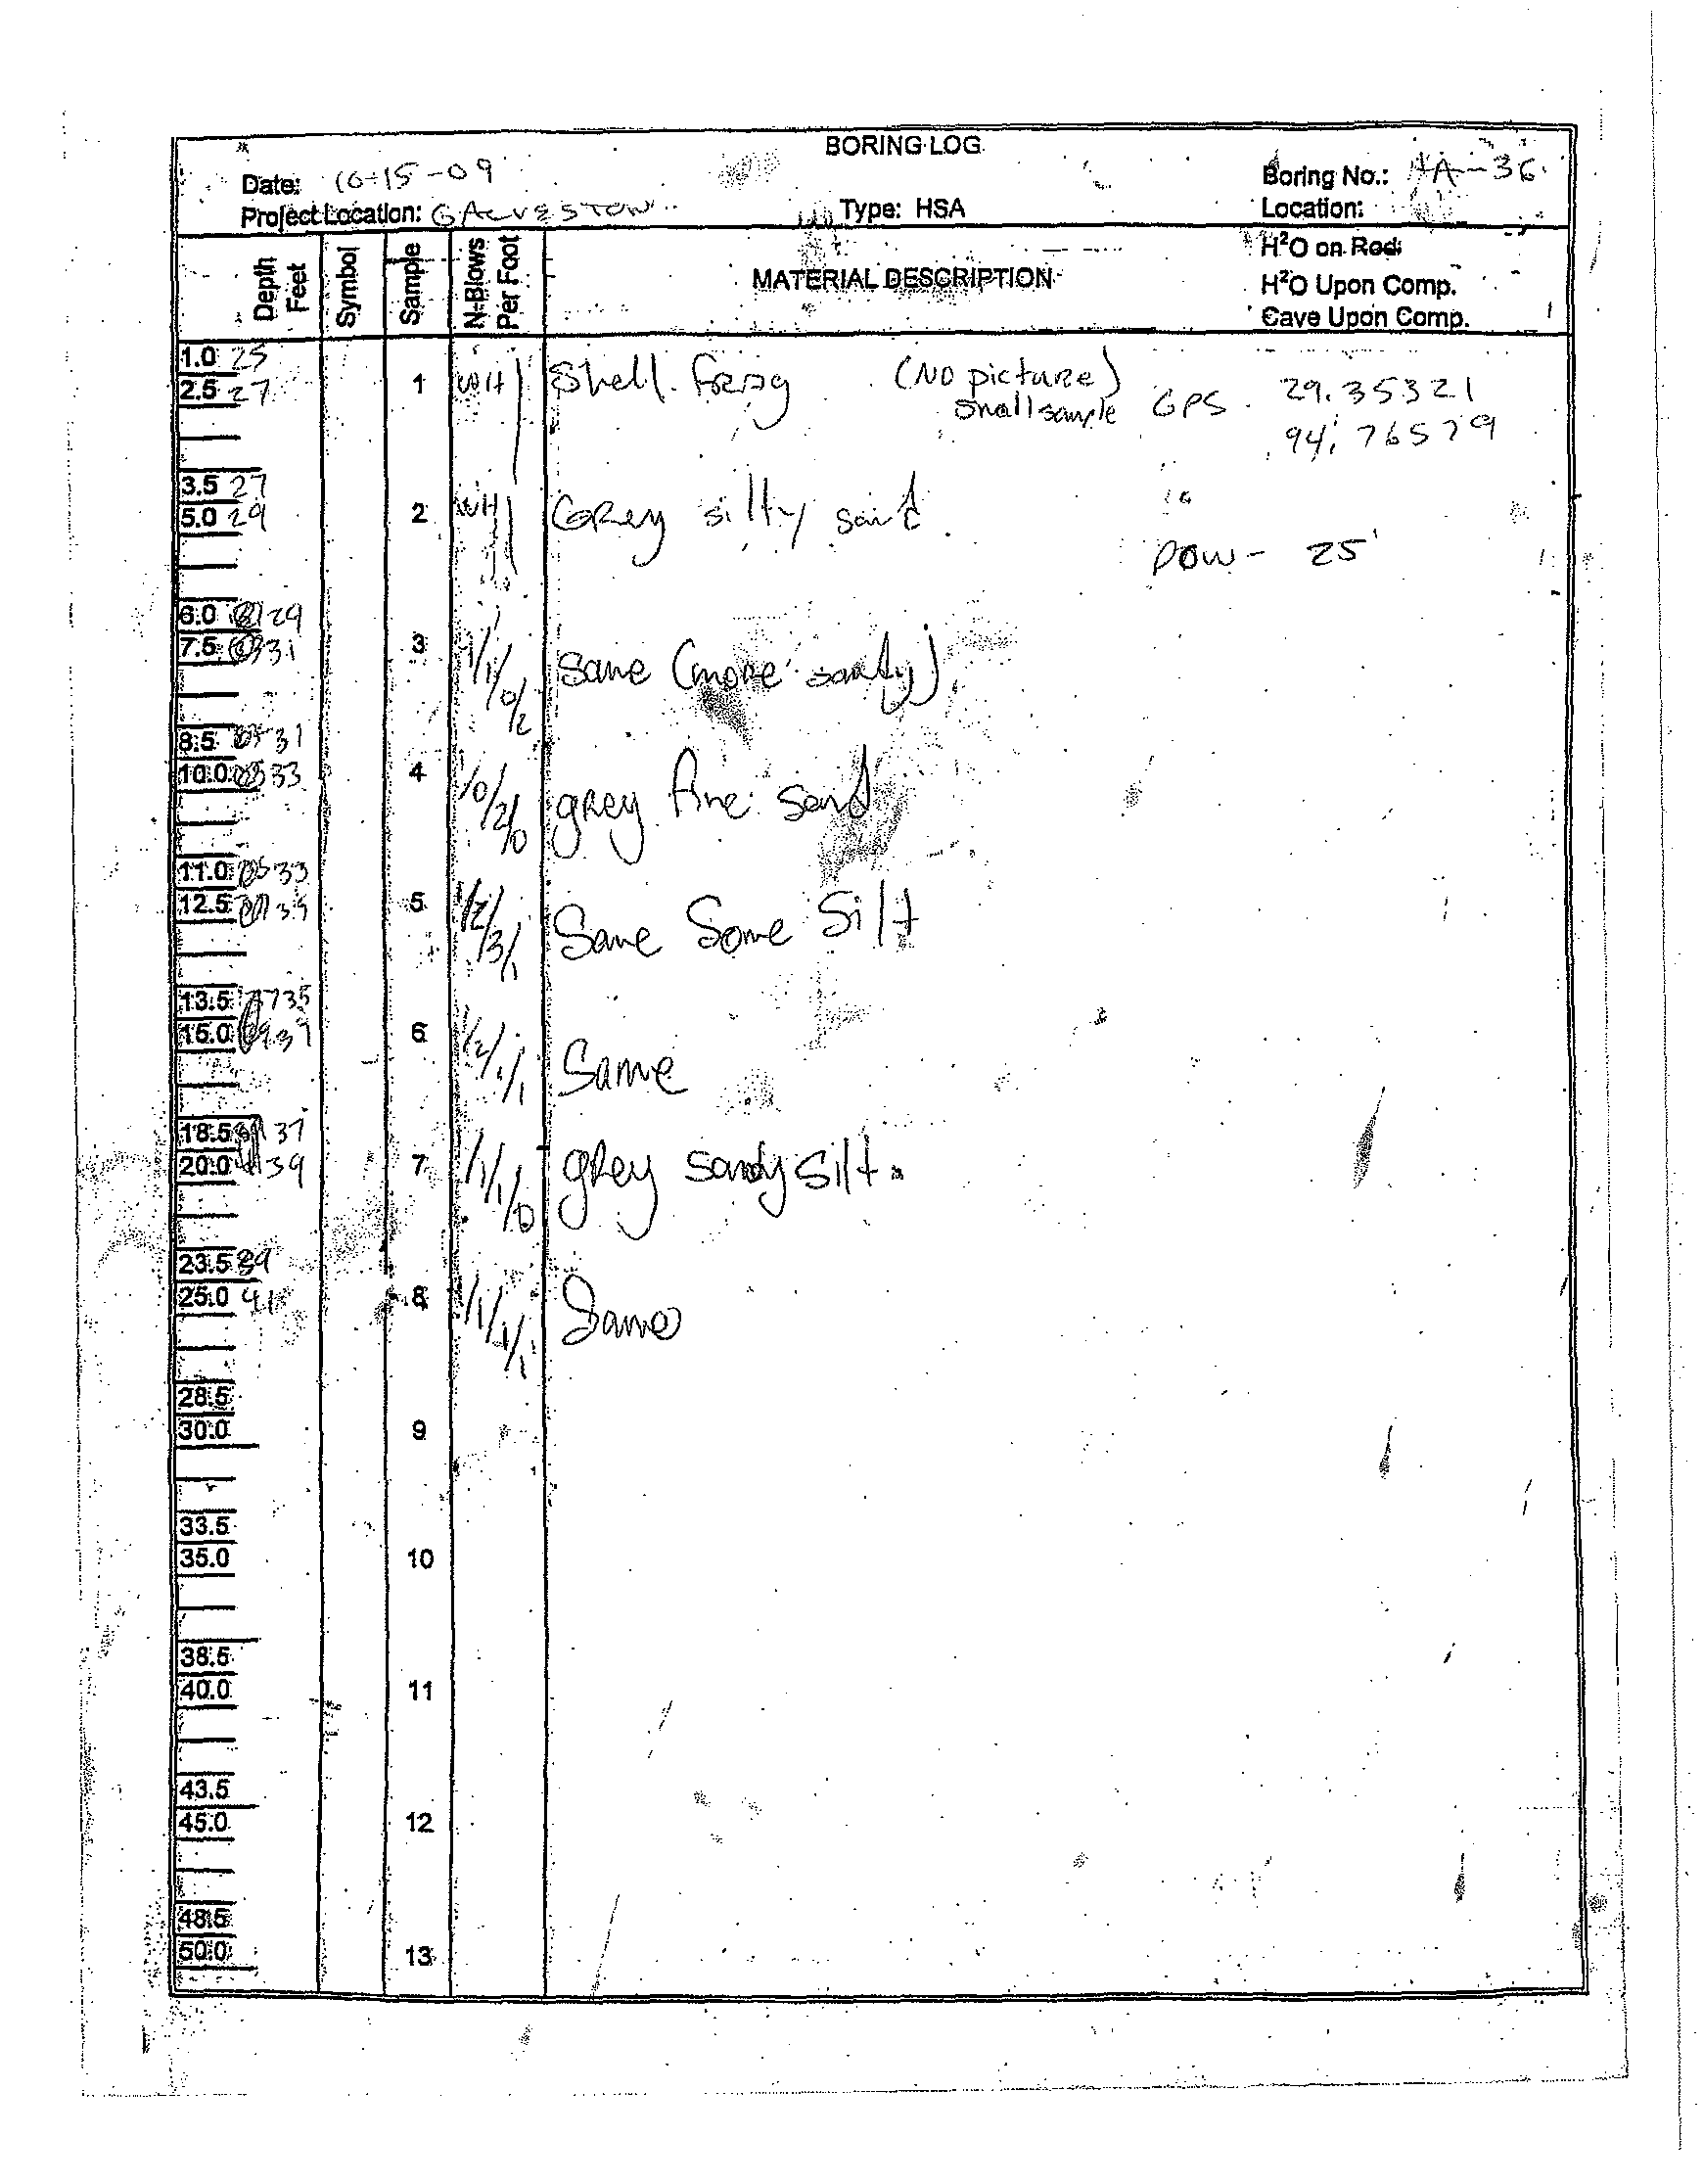 BORING LOG
Date: 10-15-09
Boring No.: HA-36
Project Location: GALVESTON
Type: HSA
Location:
Depth Feet
Symbol
Sample
N-Blows Per Foot
MATERIAL DESCRIPTION
H²O on Rod:
H²O Upon Comp.
Cave Upon Comp.
1.0 25
2.5 27
1
WH
Shell frag
(No picture)
small sample
GPS 29.35321
94.76579
3.5 27
5.0 29
2
WH
Grey silty sand
DOW - 25'
6.0 29
7.5 31
3
1/1/0/2
same (more sandy)
8.5 31
10.0 33
4
1/0/2/0
grey fine sand
11.0 33
12.5 35
5
1/2/3/1
Same Some Silt
13.5 35
15.0 37
6
1/2/1/1
Same
18.5 37
20.0 39
7
1/1/1/0
grey sandy silt.
23.5 39
25.0 41
8
1/1/1/1
Same
28.5
30.0
9
33.5
35.0
10
38.5
40.0
11
43.5
45.0
12
48.5
50.0
13